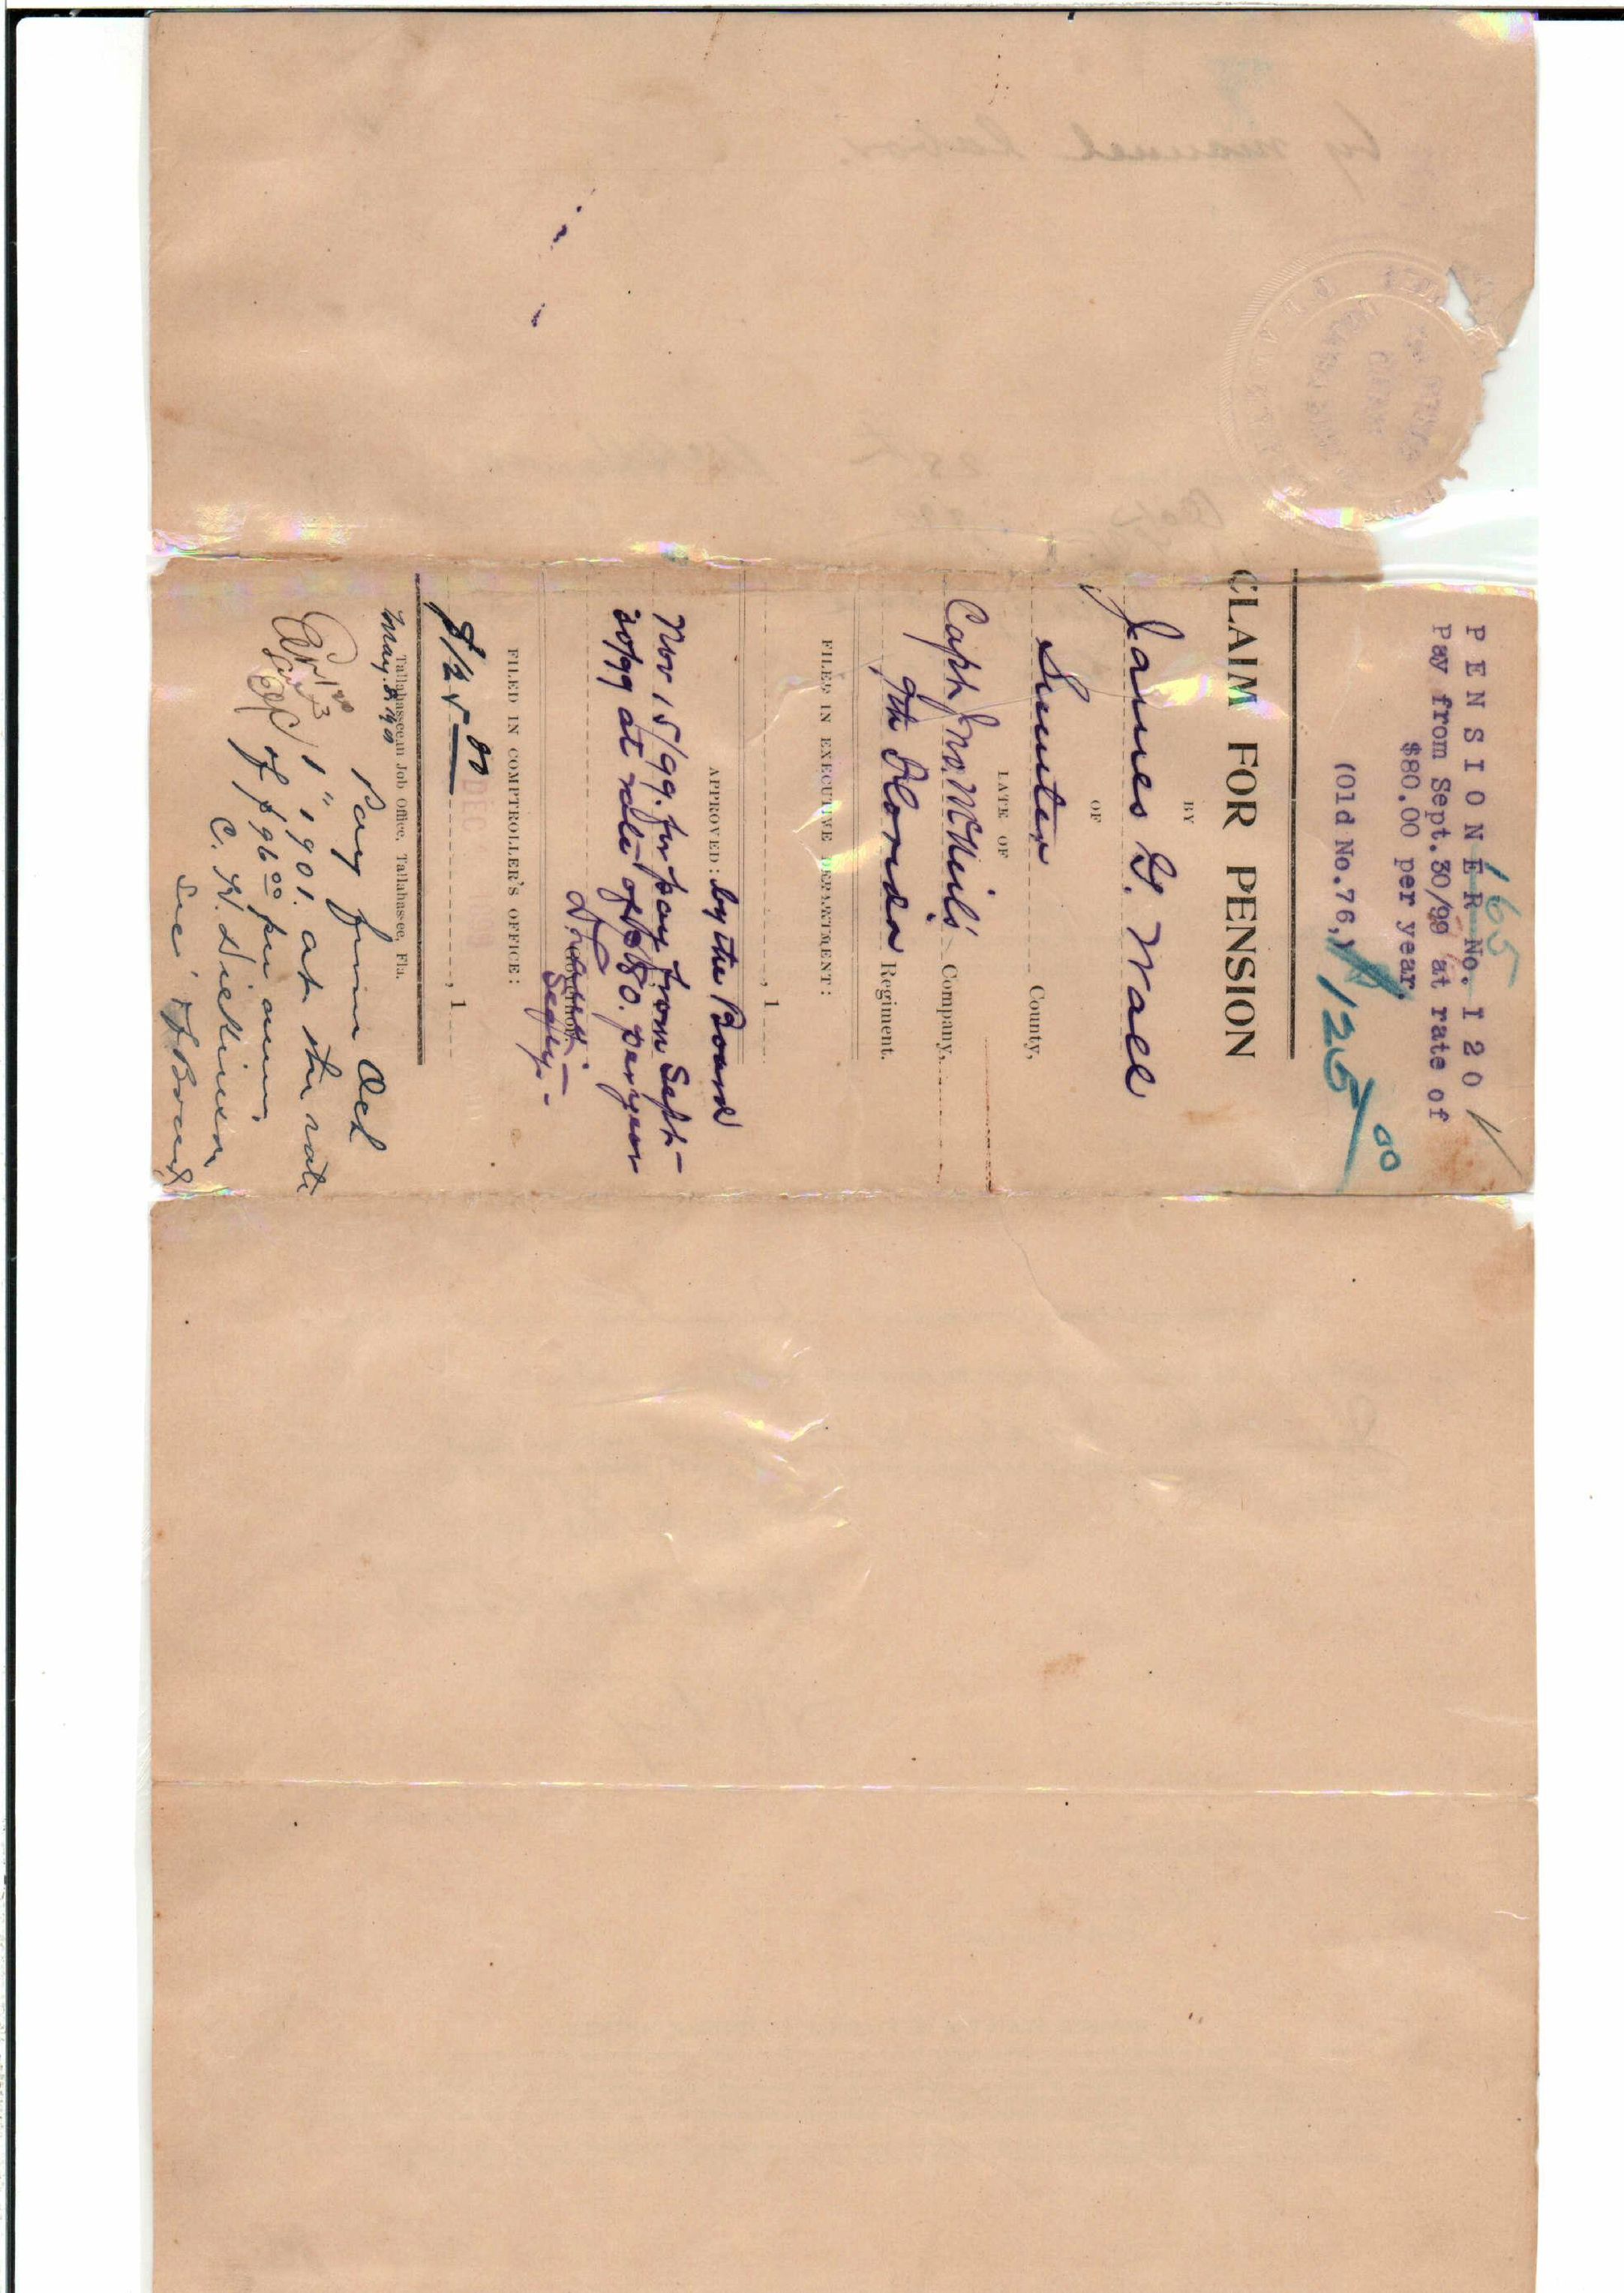 165
PENSIONER No. I 20
Pay from Sept.30/99 at rate of
$80.00 per year.
(Old No.76,)
125 00
CLAIM FOR PENSION
BY
James G. Wall
OF
Sumter County,
LATE OF
Capt Jno. McNeil's Company,
9th Florida Regiment.
FILED IN EXECUTIVE DEPARTMENT:
, 1
APPROVED: by the Board
Nov 15/99. for pay from Sept-
30/99 at rate of $80. per year
Governor.
Secty.
FILED IN COMPTROLLER'S OFFICE:
DEC
$125.00 , 1
Tallahasseean Job Office, Tallahassee, Fla.
Pay from Oct
1" 1901. at the rate
of $96.00 per annum
C. H. Dickinson
Sec' of Board
by manuel labor.